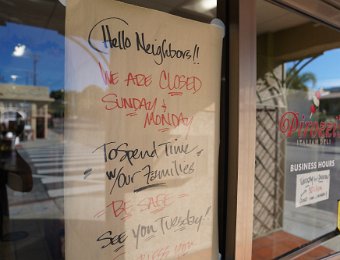 Hello Neighbors!!
WE ARE CLOSED
SUNDAY &
MONDAY
To Spend Time
w/our FAMILIES
BE SAFE
SEE YOU TUESDAY!
BUSINESS HOURS